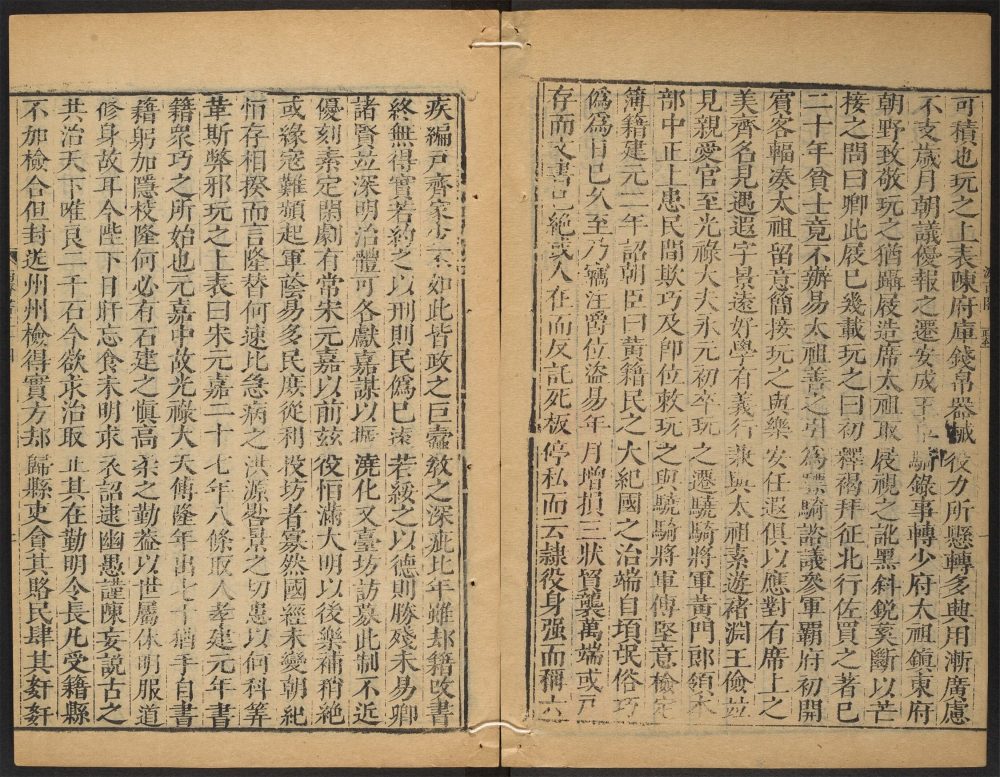 可積也玩之上表陳府庫錢帛器械役力所懸轉多興用漸廣慮
不支歲月朝議優報之遷安成王車騎錄事轉少府太祖鎮東府
朝野致敬玩之猶躡屐造席太祖取屐視之訛黑斜銳蒵斷以芒
接之問曰卿此屐已幾載玩之曰初釋褐拜征北行佐買之著已
二十年貧士竟不辦易太祖善之引為驃騎諮議參軍霸府初開
賓客輻湊太祖留意簡接玩之與樂安任遐俱以應對有席上之
美齊名見遇遐字景遠好學有義行兼與太祖素遊褚淵王儉並
見親愛官至光祿大夫永元初卒玩之遷驍騎將軍黃門郎領本
部中正上患民間欺巧及即位敕玩之與驍騎將軍傅堅意檢定
簿籍建元二年詔朝臣曰黃籍民之大紀國之治端自頃氓俗巧
偽為日已久至乃竊注爵位盜易年月增損三狀貿襲萬端或戶
存而文書已絕或人在而反託死板停私而云隸役身强而稱六
疾編戶齊家少不如此皆政之巨蠹教之深疵比年雖却籍改書
終無得實若約之以刑則民偽已遠若綏之以德則勝殘未易卿
諸賢並深明治體可各獻嘉謀以振澆化又臺坊訪募此制不近
優刻素定閑劇有常宋元嘉以前茲役恒滿大明以後樂補稍絕
或緣寇難頻起軍蔭易多民庶從利投坊者寡然國經未變朝紀
恒存相揆而言隆替何速此急病之洪源晷景之切患以何科筭
革斯弊邪玩之上表曰宋元嘉二十七年八條取人孝建元年書
籍衆巧之所始也元嘉中故光祿大夫傅隆年出七十猶手自書
籍躬加隱校隆何必有石建之慎高柴之勤葢以世屬休明服道
修身故耳今陛下日旰忘食未明求衣詔逮幽愚謹陳妄説古之
共治天下唯良二千石今欲求治取正其在勤明令長凡受籍縣
不加檢合但封送州州檢得實方却歸縣吏貪其賂民肆其姦姦